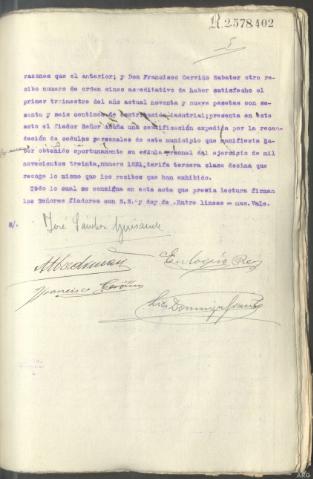 R.2.578.402
5
razones que el anterior; y Don Francisco Cerviño Sabater otro re-
cibo numero de orden cinco acreditativo de haber satisfecho el
primer trimestre del año actual noventa y nueve pesetas con se-
senta y seis centimos de contribución industrial; presenta en este
acto el fiador Señor una certificación expedida por la recauda-
dación de cedulas personales de este municipio que manifiesta ha-
ber obtenido oportunamente su cedula personal del ejercicio de mil
novecientos treinta, numero 1221, tarifa tercera clase decima que
recoge lo mismo que los recibos que han exhibido.
Todo lo cual se consigna en esta acta que previa lectura firman
los Señores fiadores con S.S.ª y doy fe. Entre lineas = nue. Vale.
José Sánchez
Eulogio Rey
Francisco Cerviño
Luis Dominguez